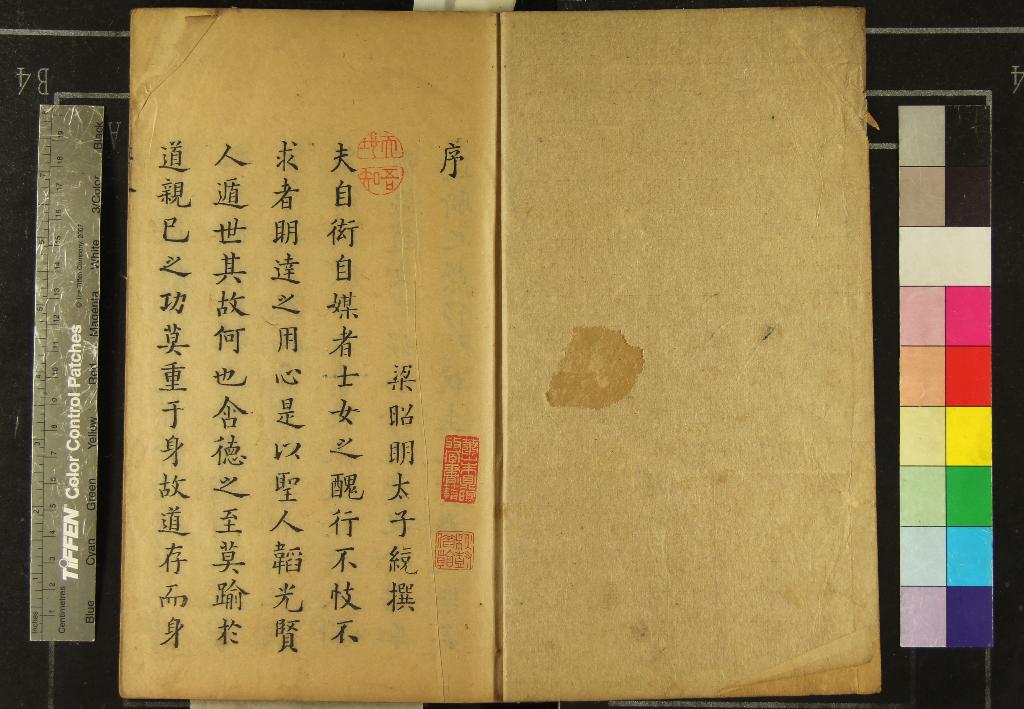 序
梁昭明太子統撰
夫自衒自媒者士女之醜行不忮不
求者明達之用心是以聖人韜光賢
人遁世其故何也含德之至莫踰於
道親已之功莫重于身故道存而身
B4
TIFFEN Color Control Patches
© The Tiffen Company, 2007
Inches
Centimetres
Blue
Cyan
Green
Yellow
Red
Magenta
White
3/Color
Black